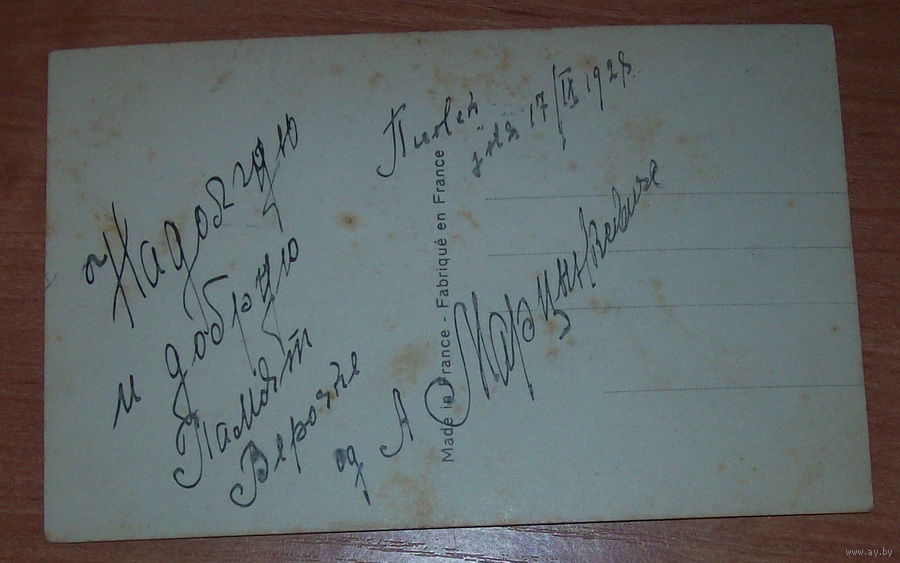 Надолгую
и добрую
Памят
Верочке
од А Марцинкевича
дня 17/IX 1928
Made in France - Fabriqué en France
www.ay.by